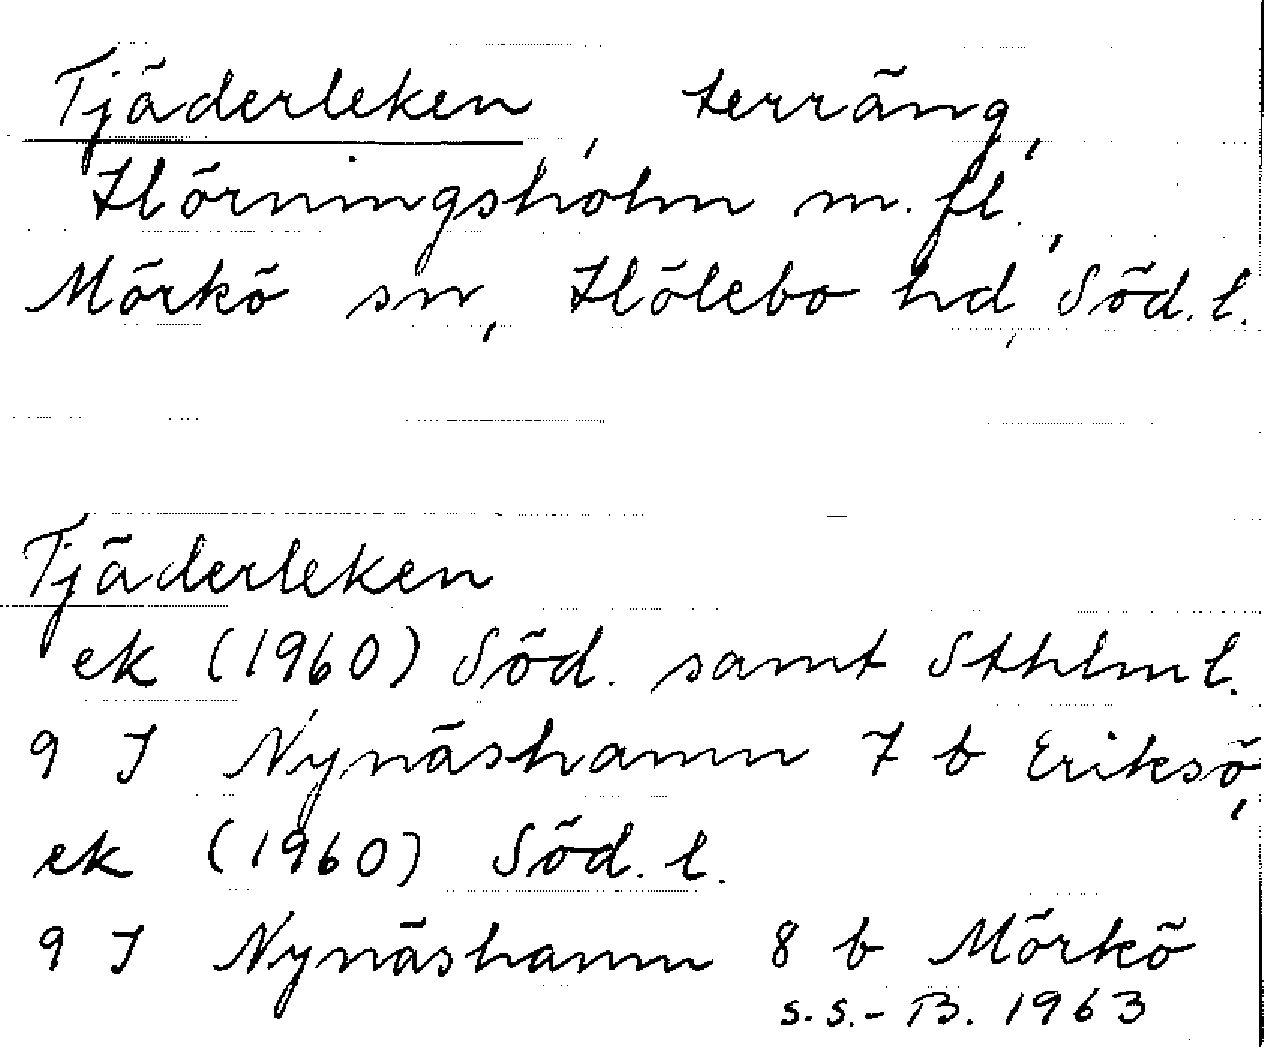 Tjäderleken, terräng,
Hörningsholm m. fl.,
Mörkö sn, Hölebo hd, Söd. l.
Tjäderleken
ek (1960) Söd. samt Sthlm l.
9 I Nynäshamn 7 b Eriksö,
ek (1960) Söd. l.
9 I Nynäshamn 8 b Mörkö
s.s.-B. 1963